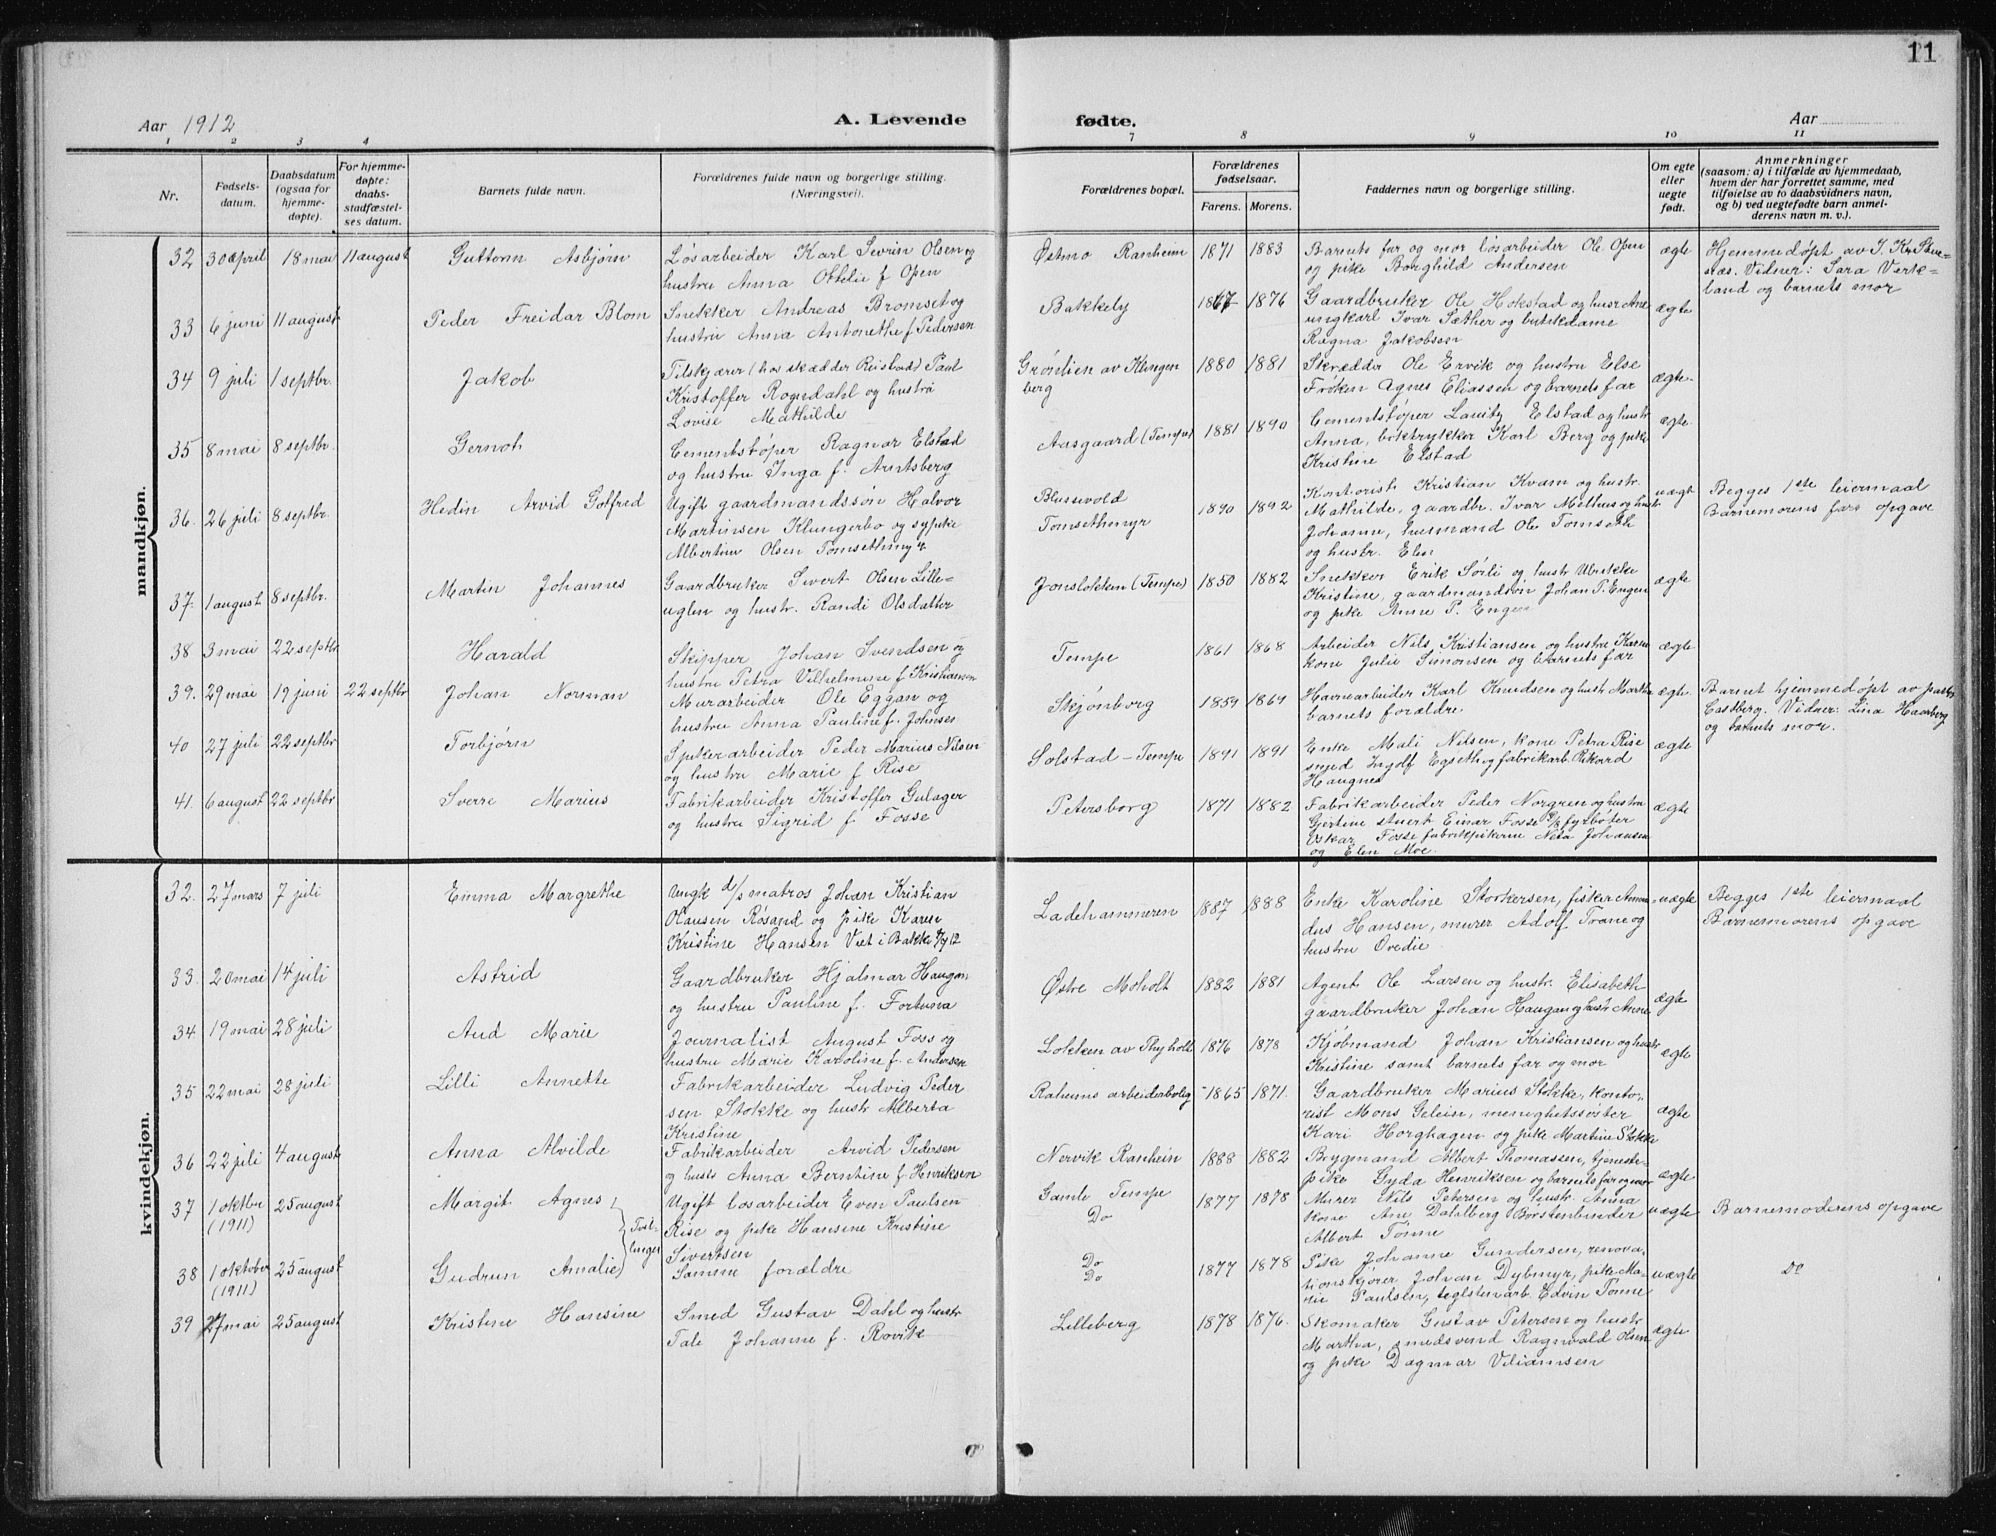 11
Aar 1912
A. Levende
fødte.
Aar
1 2 3 4 7 8 9 10 11
Nr.
Fødsels-
datum.
Daabsdatum
(ogsaa for
hjemme-
døpte).
For hjemme-
døpte:
daabs-
stadfæstel-
ses datum.
Barnets fulde navn.
Forældrenes fulde navn og borgerlige stilling.
(Næringsvei).
Forældrenes bopæl.
Forældrenes
fødselsaar.
Farens. Morens.
Faddernes navn og borgerlige stilling.
Om egte
eller
uegte
født.
Anmerkninger
(saasom: a) i tilfælde av hjemmedaab,
hvem der har forrettet samme, med
tilføielse av to daabsvidners navn,
og b) ved uegtefødte barn anmel-
derens navn m. v.).
mandkjøn.
32 30 april 18 mai 11 august Guttorm Asbjørn
Løsarbeider Karl Sevrin Olsen og
hustru Anna Ottilie f Open
Østmo Ranheim 1871 1883
Barnets far og mor løsarbeider Ole Open
og pike Borghild Andersen
ægte
Hjemmedøpt av J. Kr.
Vidner: Sara Verk-
land og barnets mor
33 6 juni 11 august Peder Freidar Blom
Snekker Andreas Bromset og
hustru Anna Antonethe f Pedersen
Bakkely 1867 1876
Gaardbruker Ole Hokstad og husr Ane
ungkarl Ivar Sæther og butikdame
Ragna Jakobssen
ægte
34 9 juli 1 septbr. Jakob
Tilskjærer (hos skædder Reistad) Paul
Kristoffer Rogndahl og hustru
Lovise Mathilde
Grønlien av Klingen
berg 1880 1881
Skrædder Ole Ervik og hustru Else
Frøken Agnes Eliassen og barnets far
ægte
35 8 mai 8 septbr. Gernot
Cementstøper Ragnar Elstad
og hustru Inga f. Arntsberg
Aasgaard (Tempe) 1881 1890
Cementstøper Lauitz Elstad og hustr
Anna, boktrykker Karl Berg og pike
Kristine Elstad
ægte
36. 26 juli 8 septbr. Hedin Arvid Gotfred
Ugift gaardmandssøn Halvor
Martinsen Klungerbo og sypike
Albertine Olsen Tomsethmyr
Blussuvold
Tomsethmyr 1890 1892
Kontorist Kristian Kvam og hustr.
Mathilde, gaardbr. Ivar Melhus og hustr
Johanne, husmand Ole Tomseth
og hustr. Elen
uægt
Begges 1ste leiermaal
Barnemorens fars opgave
37. 1 august 8 septbr. Martin Johannes
Gaardbruker Sivert Olsen Lille-
uglen og hustr. Randi Olsdatter
Jonsløkken (Tempe) 1850 1882
Snekker Erik Sørli og hustr Ulrikke
Kristine, gaardmandsøn Johan P. Engen
og pike Anne P. Engen
ægte
38 3 mai 22 septbr Harald
Skipper Johan Svendsen og
hustru Petra Vilhelmine f Kristiansen
Tempe 1861 1868
Arbeider Nils Kristiansen og hustru Karen
kone Julie Simonsen og barnets far
ægte
39. 29 mai 19 juni 22 septbr Johan Norman
Murarbeider Ole Eggan og
hustru Anna Pauline f. Johnsen
Skjønborg 1859 1869
Havnearbeider Karl Knudsen og hustr Martha
barnets forældre
ægte
Barnet hjemmedøpt av pastor
Castberg. Vidner: Lina Haarberg
og barnets mor.
40 27 juli 22 septbr Torbjørn
Spikerarbeider Peder Marius Nilsen
og hustru Marie f Rise
Solstad - Tempe 1891 1891
Enke Mali Nilsen, kone Petra Rise
smed Ingolf Egseth og fabrikarb. Rikard
Haugnes
ægte
41. 6 august 22 septbr Sverre Marius
Fabrikarbeider Kristoffer Gulager
og hustru Sigrid f. Fosse
Petersborg 1871 1882
Fabrikarbeider Peder Norgren og hustru
Gjertine stuert Einar Fosse fyrbøter
Oskar Fosse fabrikpikerne Nela Johansen
og Elen Moe.
ægte
kvindekjøn.
32. 27 mars 7 juli Emma Margrethe
Ungk d/s matros Johan Kristian
Olausen Røsand og pike Karen
Kristine Hansen Viet i Bakke 12
Ladehammeren 1887 1888
Enke Karoline Storkersen, fisker Aman-
dus Hansen, murer Adolf Trane og
hustru Ovedie
uægte
Begges 1ste leiermaal
Barnemorens opgave
33. 20 mai 14 juli Astrid
Gaardbruker Hjalmar Haugan
og hustru Pauline f. Fortuna
Østre Moholt 1882 1881
Agent Ole Larsen og hustr. Elisabeth
gaardbruker Johan Haugan og hustr Anne
ægte
34. 19 mai 28 juli Aud Marie
Journalist August Foss og
hustru Marie Karoline f. Andersen
Løkken av Thyholt 1876 1878
Kjøbmand Johan Kristiansen og hustr
Kristine samt barnets far og mor
ægte
35 22 mai 28 juli Lilli Annette
Fabrikarbeider Ludvig Peder
sen Stokke og hustr Alberta
Kristine
Ranheims arbeiderbolig 1865 1871.
Gaardbruker Marius Stokke, konto-
rist Mons Gelein, menighetssøster
Kari Horghagen og pike Martine Stokke
ægte
36 22 juli 4 august Anna Alvilde
Fabrikarbeider Arvid Pedersen
og hustr Anna Berntine f. Henriksen
Nervik Ranheim 1888 1882
Brygmand Albert Thomassen, tjeneste-
pike Gyda Henriksen og barnets far og mor
ægte
37 1 oktbr
(1911) 25 august Margit Agnes
Tvil-
linger
Ugift løsarbeider Even Paulsen
Rise og pike Hansine Kristine
Sivertsen
Gamle Tempe
Do 1877 1878
Murer Nils Petersen og hustr. Anna
kone Ane Dahlberg Børstenbinder
Albert Tønne
uægte
Barnemoderens opgave
38 1 oktober
(1911) 25 august Gudrun Amalie
Samme forældre
Do
Do 1877 1878
Pike Johanne Gundersen, renova-
tionskjører Johan Dybmyr, pike Ma-
rie Paulsen, teglstenarb. Edvin Tønne
uægte
Do
39 27 mai 25 august Kristine Hansine
Smed Gustav Dahl og hustr
Tale Johanne f. Rønvik
Lilleberg 1878 1876.
Skomaker Gustav Petersen og hustr
Martha, smedsvend Ragnvald Olsen
og pike Dagmar Viliamsen
ægte